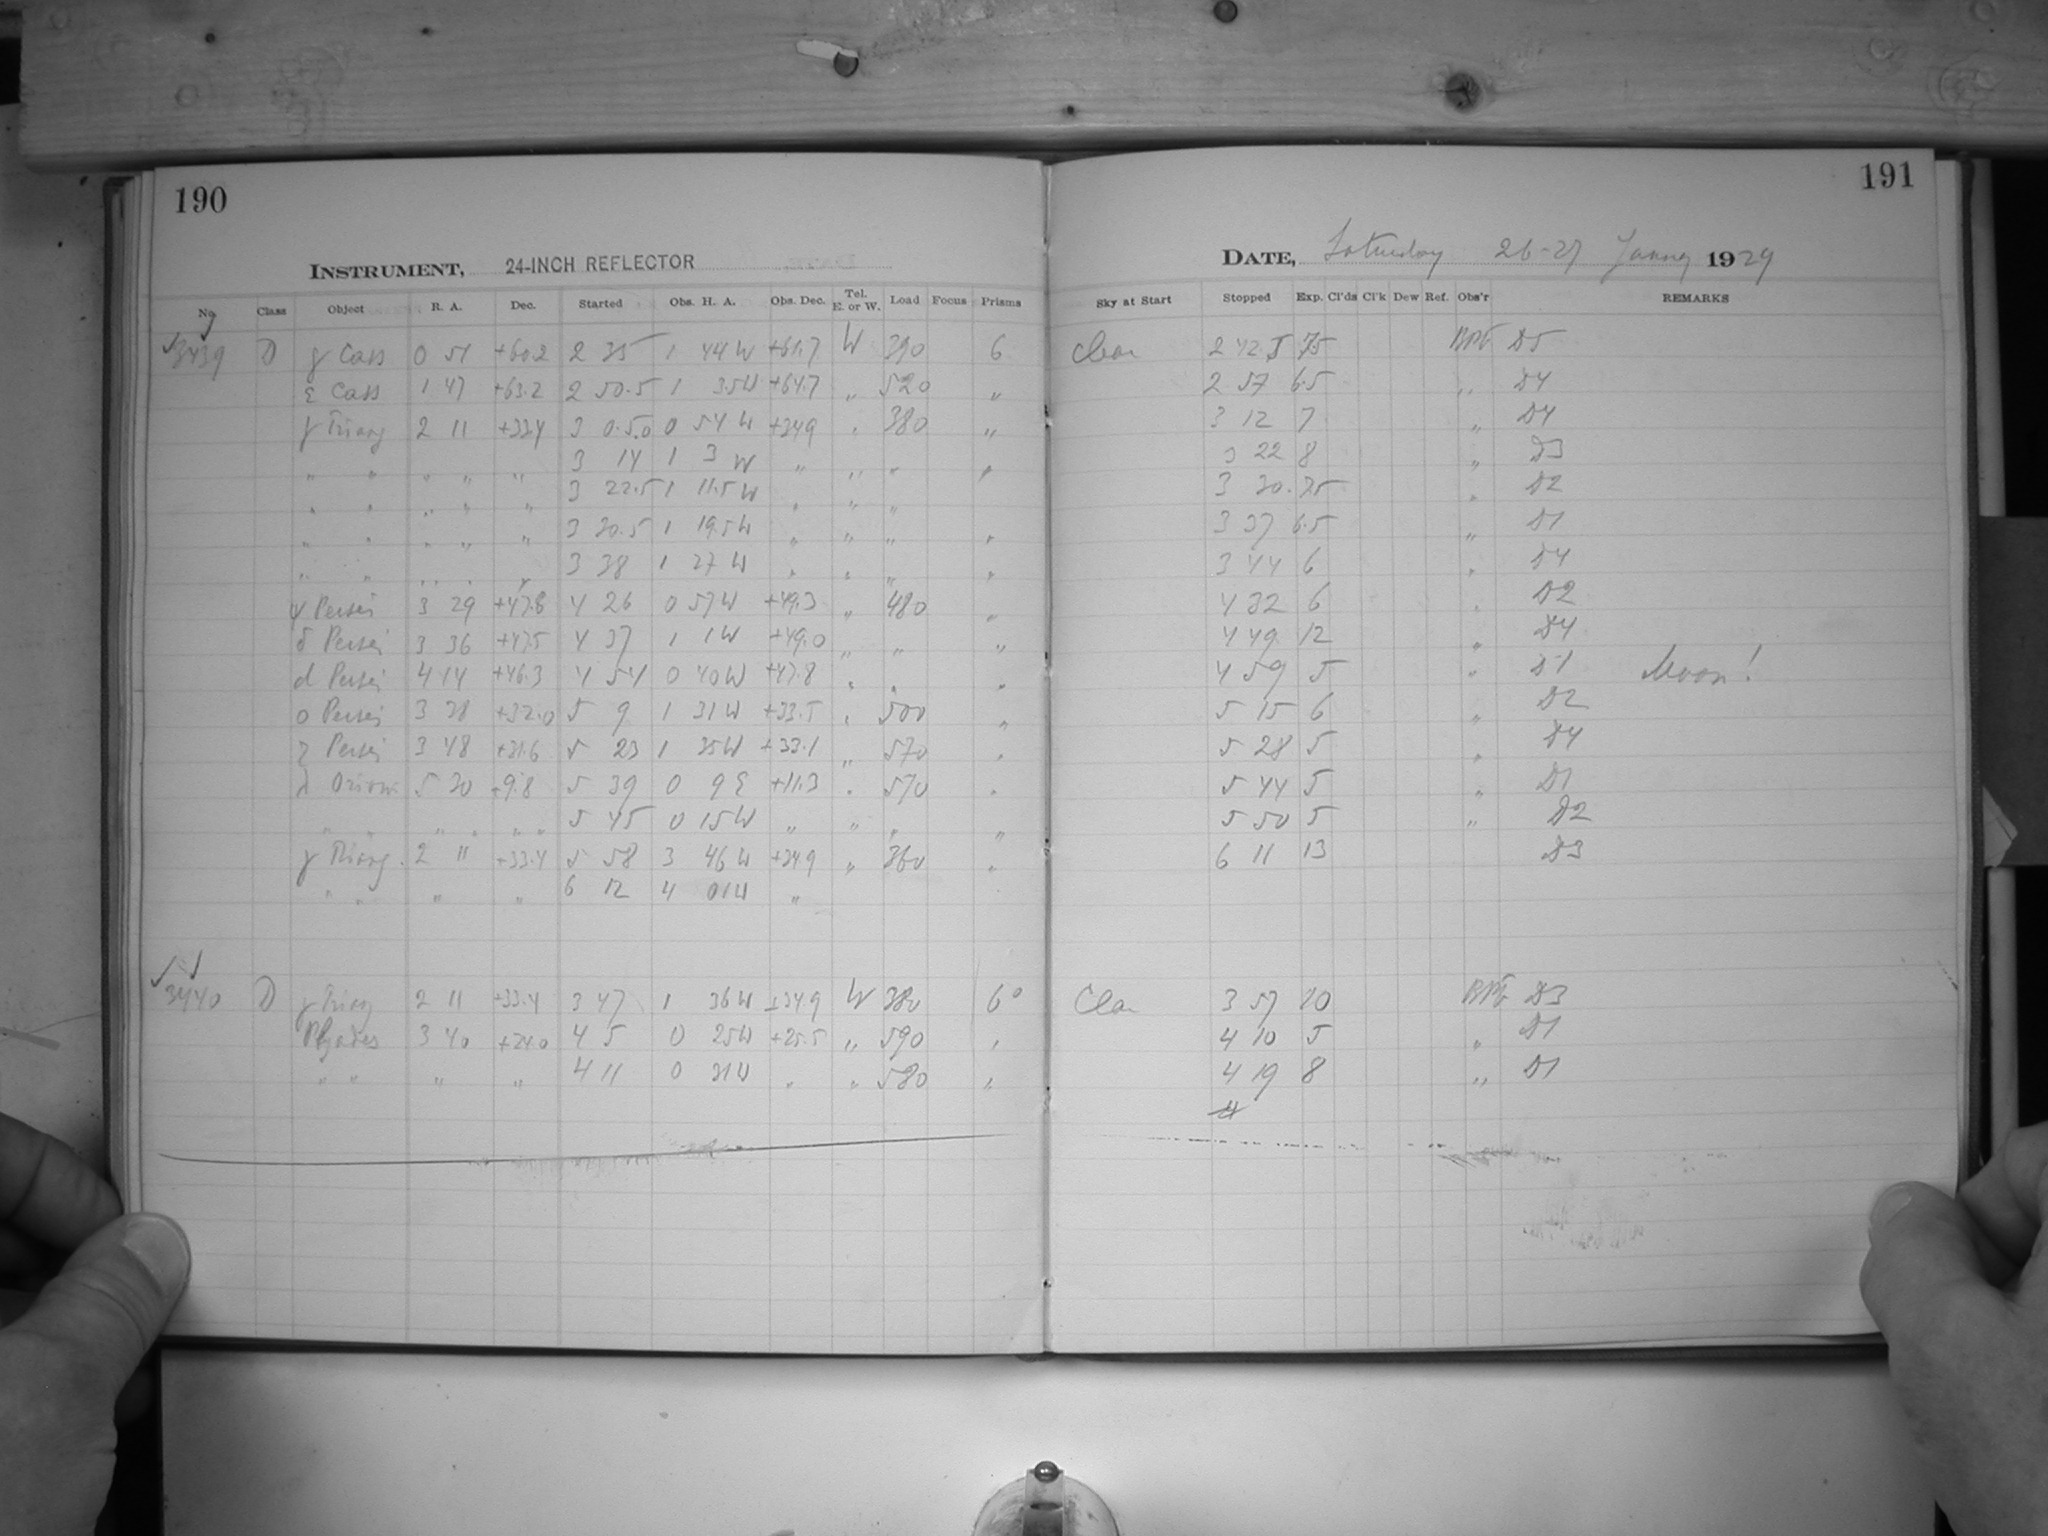 190
INSTRUMENT, 24-INCH REFLECTOR
No. Class Object R. A. Dec. Started Obs. H. A. Obs. Dec. Tel. E. or W. Load Focus Prisms
3439 D γ Cass 0 51 +60.2 2 35 1 44 W +61.7 W 390 6
ε Cass 1 47 +63.2 2 50.5 1 3.5W +64.7 " 520 "
γ Triang 2 11 +33.4 3 05.0 0 54 W +34.9 " 380 "
" " " " " 3 14 1 3 W " " " "
" " " " " 3 22.5 1 11.5W " " "
" " " " " 3 30.5 1 19.5W " " " "
" " " " " 3 38 1 27 W " " " "
ψ Persei 3 29 +47.8 4 26 0 57W +49.3 " 480 "
δ Persei 3 36 +47.5 4 37 1 1W +49.0 " " "
d Persei 4 14 +46.3 4 54 0 40W +47.8 " " "
o Persei 3 38 +32.0 5 9 1 31W +33.5 " 500 "
ζ Persei 3 48 +31.6 5 23 1 35W +33.1 " 570 "
λ Orionis 5 30 +9.8 5 39 0 9 E +11.3 " 570 "
" " " " " " 5 45 0 15W " " " "
γ Triang. 2 11 +33.4 5 58 3 46W +34.9 " 360 "
" " " " 6 12 4 01W "
3440 D γ Triang 2 11 +33.4 3 47 1 36W +34.9 W 380 6°
Plejades 3 40 +24.0 4 5 0 25W +25.5 " 590 "
" " " " 4 11 0 31W " " 580 "
191
DATE, Saturday 26-27 January 1929
Sky at Start Stopped Exp. Cl'ds Cl'k Dew Ref. Obs'r REMARKS
Clear 2 42.5 7.5 D5
2 57 6.5 " D4
3 12 7 " D4
3 22 8 " D3
3 30. 7.5 " D2
3 37 6.5 " D1
3 44 6 " D4
4 32 6 " D2
4 49 12 " D4
4 59 5 " D1 Moon!
5 15 6 " D2
5 28 5 " D4
5 44 5 " D1
5 50 5 " D2
6 11 13 D3
Clear 3 57 10 D3
4 10 5 " D1
4 19 8 " D1
4